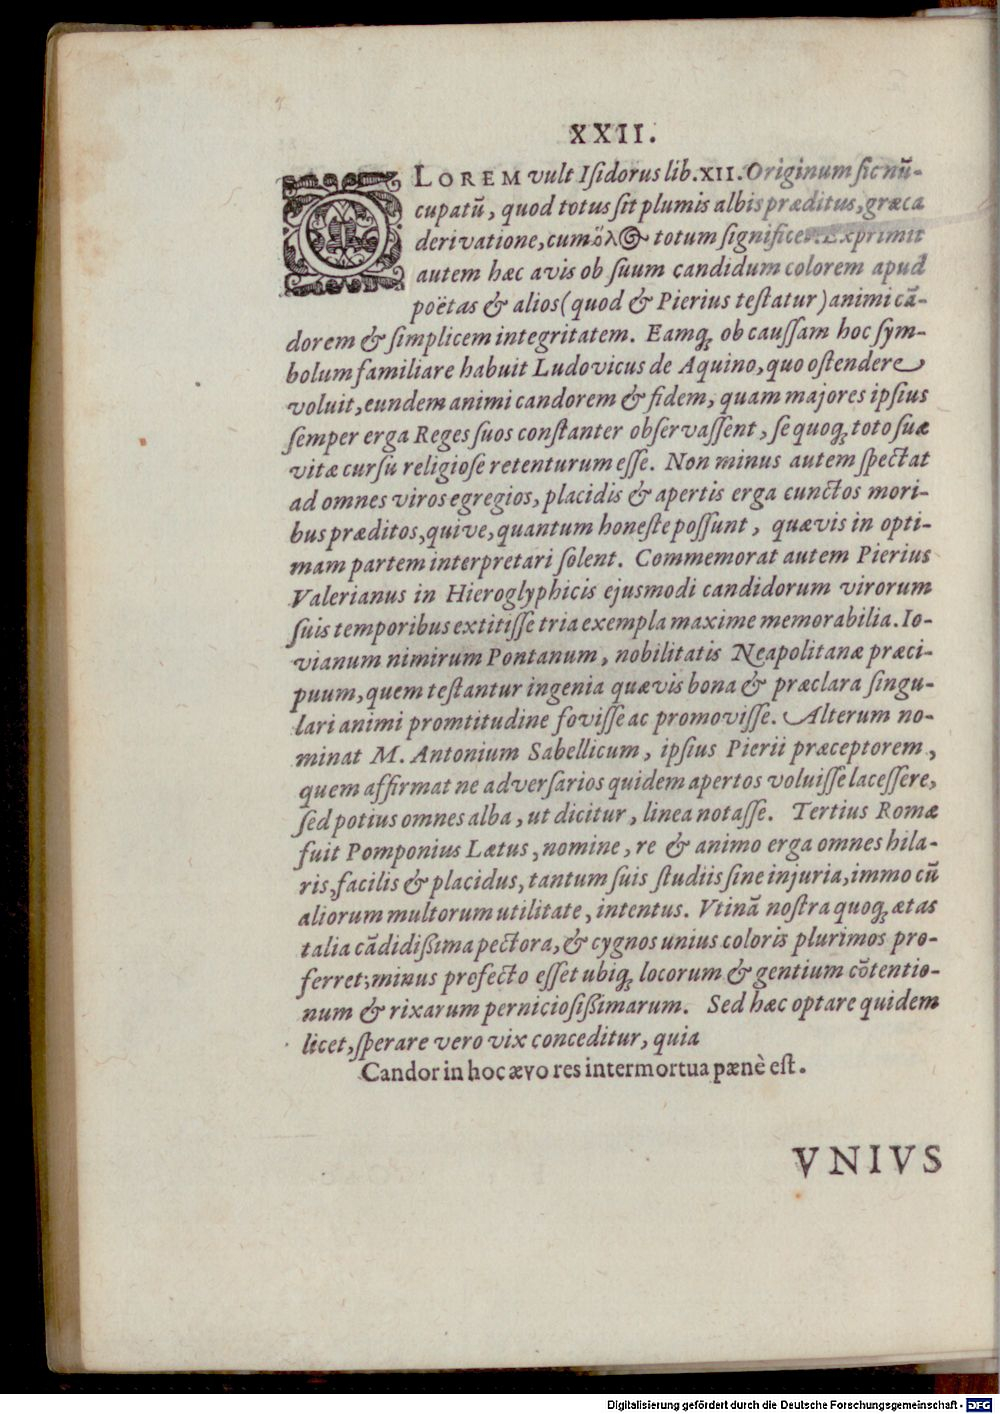 XXII.
OLOREM vult Iſidorus lib. XII. Originum ſic nū-
cupatū, quod totus ſit plumis albis præditus, græca
derivatione, cum ὅλος totum ſignificet. Exprimit
autem hæc avis ob ſuum candidum colorem apud
poëtas & alios (quod & Pierius teſtatur) animi cā-
dorem & ſimplicem integritatem. Eamq́; ob cauſſam hoc ſym-
bolum familiare habuit Ludovicus de Aquino, quo oſtendere
voluit, eundem animi candorem & fidem, quam majores ipſius
ſemper erga Reges ſuos conſtanter obſervaſſent, ſe quoq́; toto ſuæ
vitæ curſu religioſe retenturum eſſe. Non minus autem ſpectat
ad omnes viros egregios, placidis & apertis erga cunctos mori-
bus præditos, quive, quantum honeſte poſſunt, quævis in opti-
mam partem interpretari ſolent. Commemorat autem Pierius
Valerianus in Hieroglyphicis ejuſmodi candidorum virorum
ſuis temporibus extitiſſe tria exempla maxime memorabilia. Io-
vianum nimirum Pontanum, nobilitatis Neapolitanæ præci-
puum, quem teſtantur ingenia quævis bona & præclara ſingu-
lari animi promtitudine foviſſe ac promoviſſe. Alterum no-
minat M. Antonium Sabellicum, ipſius Pierii præceptorem,
quem affirmat ne adverſarios quidem apertos voluiſſe laceſſere,
ſed potius omnes alba, ut dicitur, linea notaſſe. Tertius Romæ
fuit Pomponius Lætus, nomine, re & animo erga omnes hila-
ris, facilis & placidus, tantum ſuis ſtudiis ſine injuria, immo cū
aliorum multorum utilitate, intentus. Vtinā noſtra quoq́; ætas
talia cādidißima pectora, & cygnos unius coloris plurimos pro-
ferret; minus profecto eſſet ubiq́; locorum & gentium cōtentio-
num & rixarum pernicioſißimarum. Sed hæc optare quidem
licet, ſperare vero vix conceditur, quia
Candor in hoc ævo res intermortua pænè eſt.
VNIVS
Digitalisierung gefördert durch die Deutsche Forschungsgemeinschaft - DFG